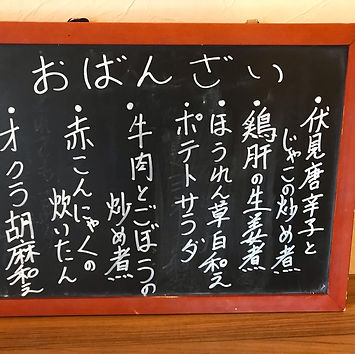 おばんざい
・伏見唐辛子と
じゃこの炒め煮
・鶏肝の生姜煮
・ほうれん草白和え
・ポテトサラダ
・牛肉とごぼうの
炒め煮
・赤こんにゃくの
炊いたん
・オクラ胡麻和え